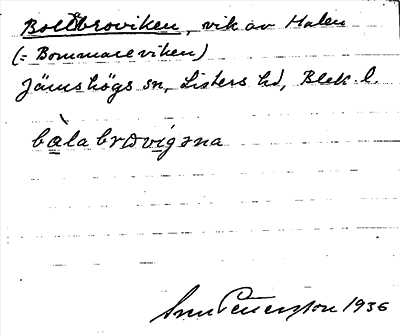 Bollbroviken, vik av Halen
(= Bommareviken)
Jämshögs sn, Listers hd, Blek. l.
bàlabrovigəna
1936